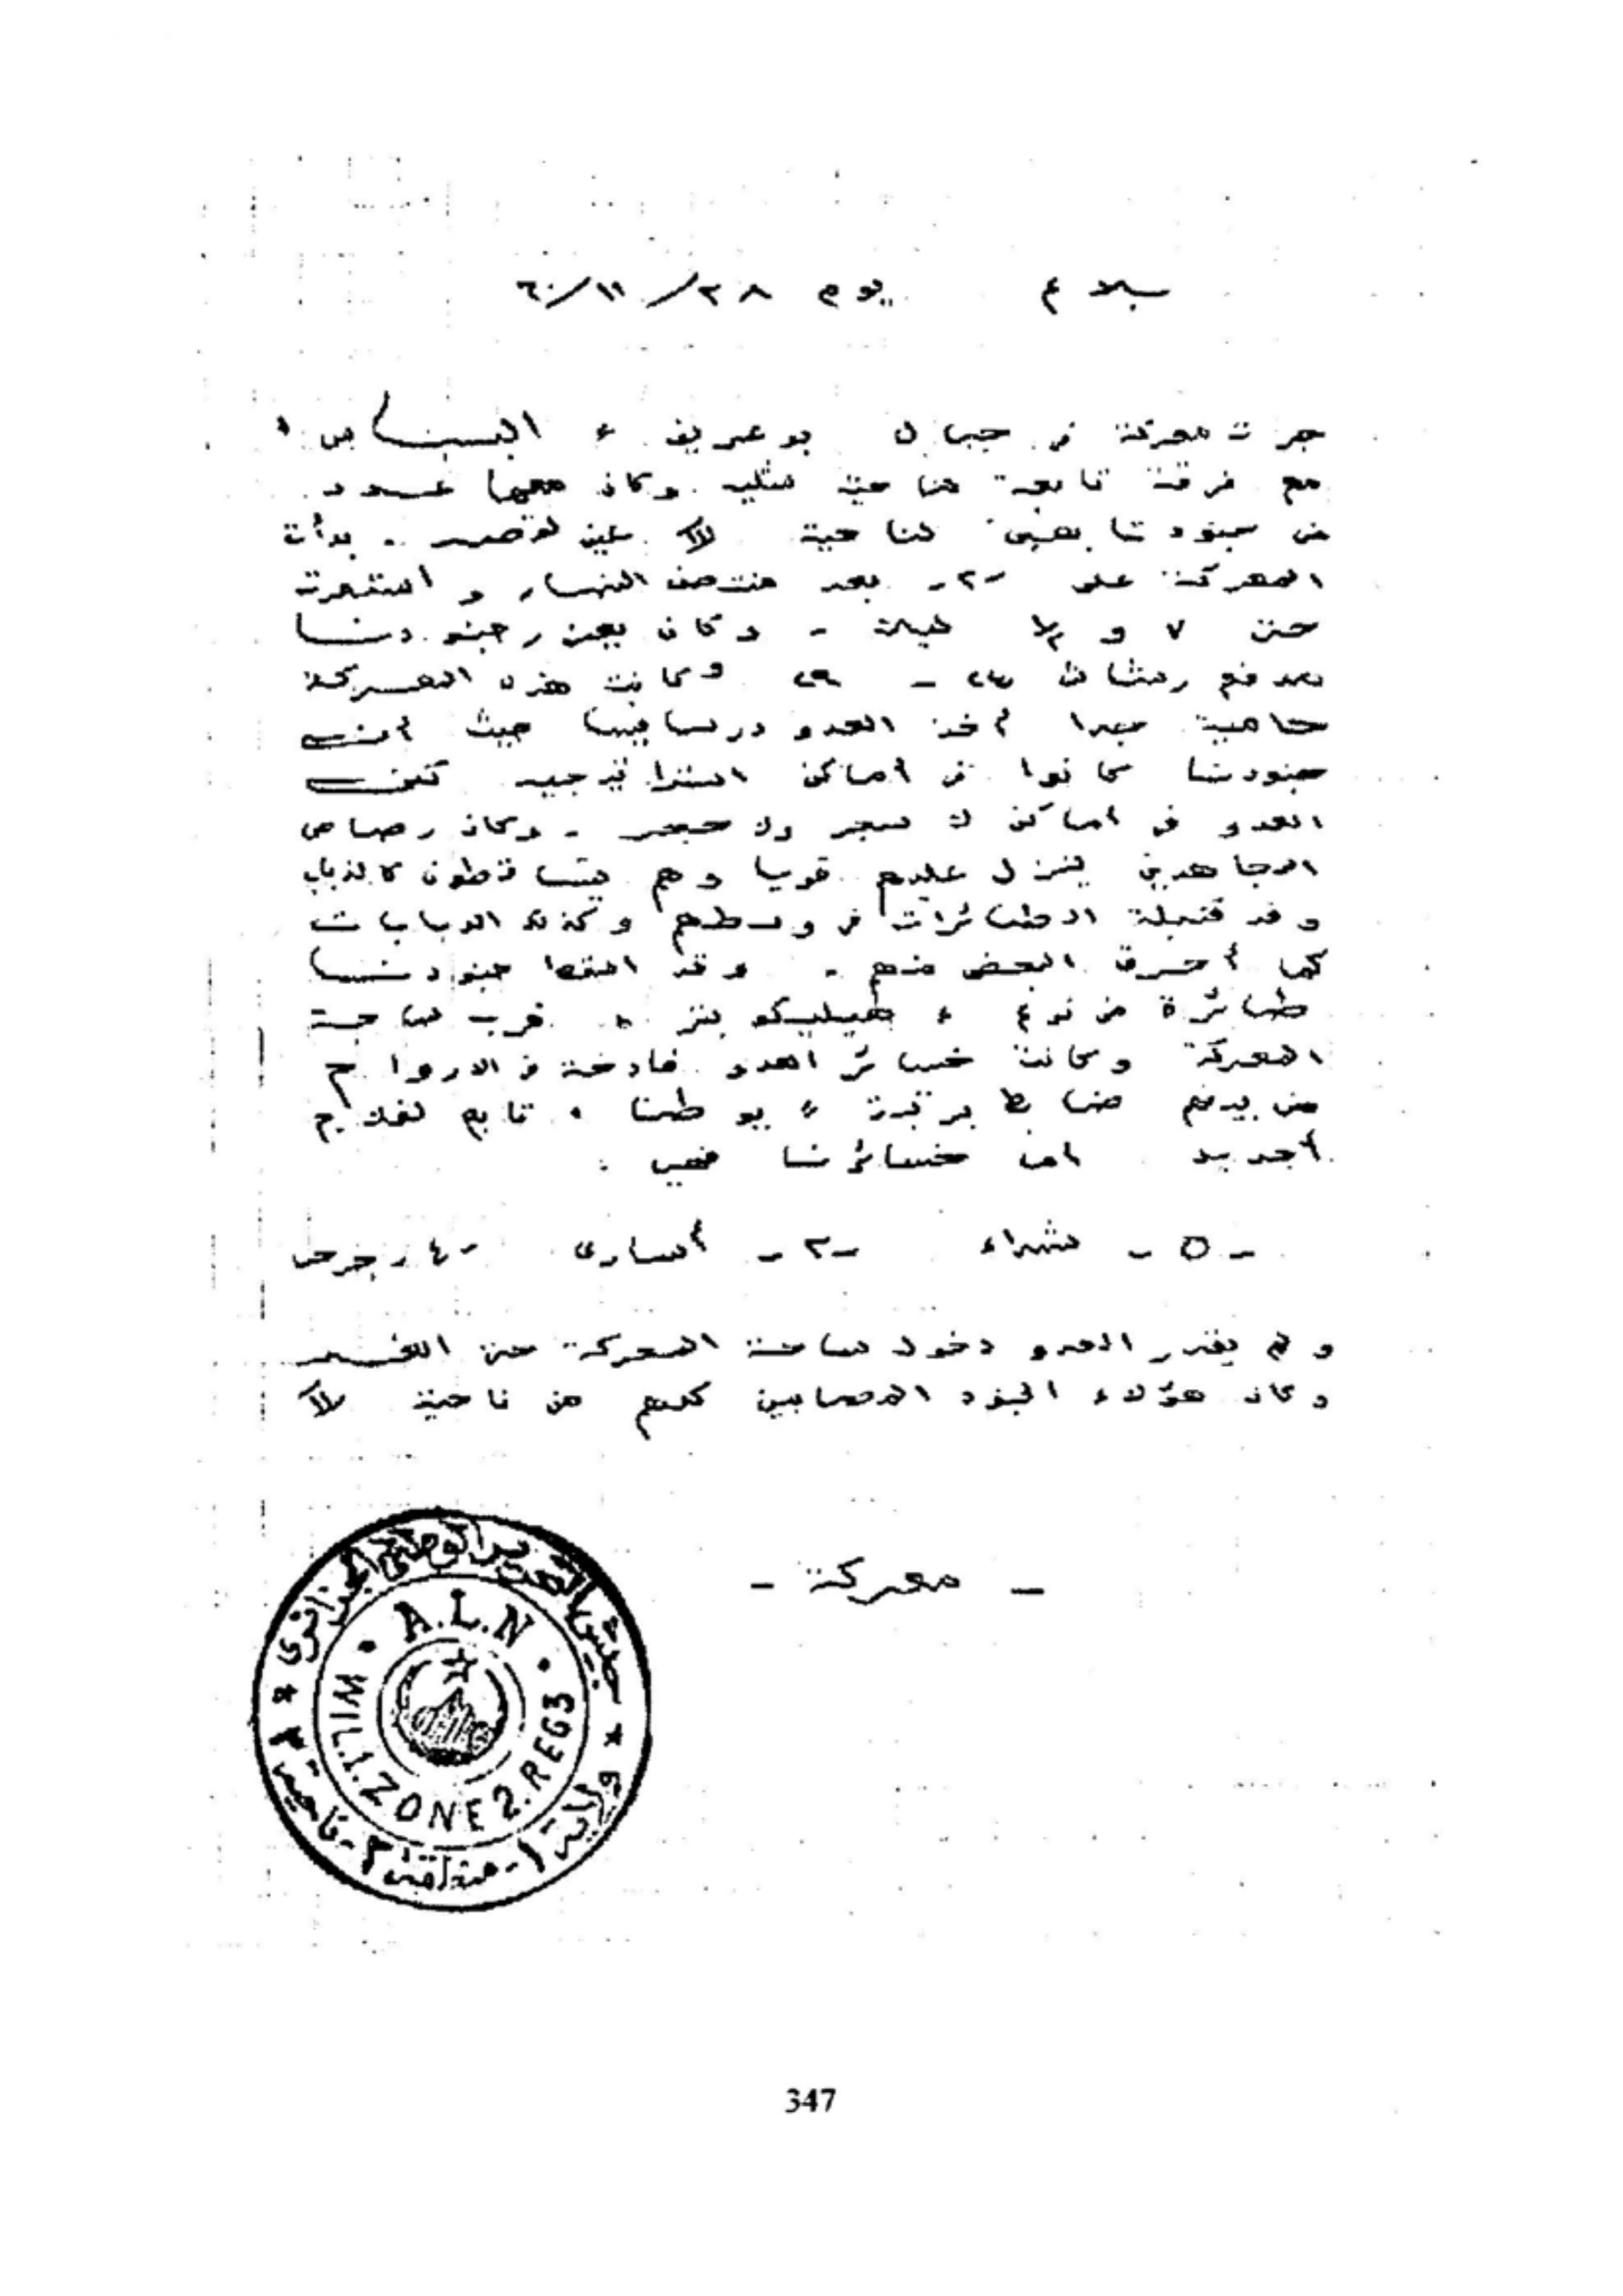 بلاغ يوم ٢٨/١١/٦٠
جرت معركة في جبال بوعريف « البسباس »
مع فرقة تابعة وكان معها عدد
من جنود تابعين لناحية بدأت
المعركة على -٢- بعد منتصف النهار و استمرت
حتى ٧ و ليلا - وكان بعض جنودنا
مدفع رشاش ٢٤ - ٢٩ وكانت هذه المعركة
حامية جدا أخذ العدو درسا حيث أن
جنودنا كانوا في أماكن استراتيجية لكن
العدو في أماكن لا شجر ولا حجر - وكان رصاص
المجاهدين ينزل عليهم قويا وهم يتساقطون كالذباب
و قد قنبلة الطائرات في وسطهم وكذلك الدبابات
كما أحرق البعض منهم - وقد اسقط جنودنا
طائرة من نوع « هيليكوبتر » قرب ساحة
المعركة وكانت خسائر العدو فادحة في الارواح
من بينهم ضابط برتبة تابع
أما خسائرنا فهي :
-٥- شهداء -٢- أسارى -٤- جرحى
و لم يقدر العدو دخول ساحة المعركة حتى
وكان هؤلاء الجنود المصابين كلهم من ناحية
- معركة -
جيش التحرير الوطني الجزائري
A.L.N
WIL.1.ZONE 2.REG3
ولاية ١ - منطقة ٢ - ناحية ٣
347